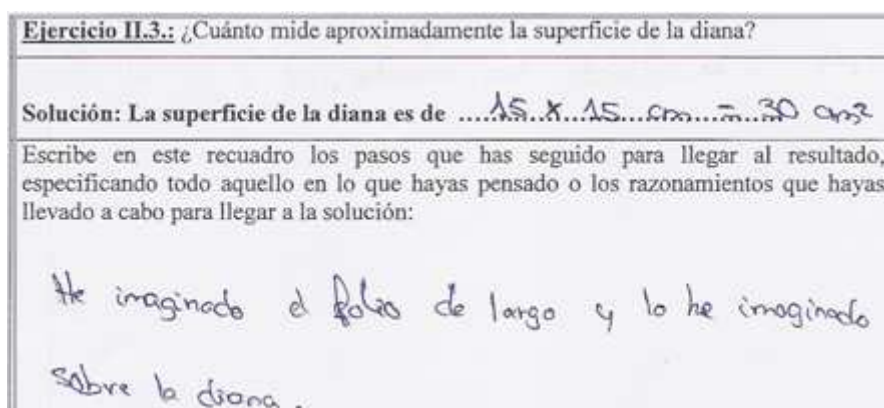 Ejercicio II.3.: ¿Cuánto mide aproximadamente la superficie de la diana?
Solución: La superficie de la diana es de .....15..x..15...cm...=...30 cm²
Escribe en este recuadro los pasos que has seguido para llegar al resultado,
especificando todo aquello en lo que hayas pensado o los razonamientos que hayas
llevado a cabo para llegar a la solución:
He imaginado el folio de largo y lo he imaginado
sobre la diana.